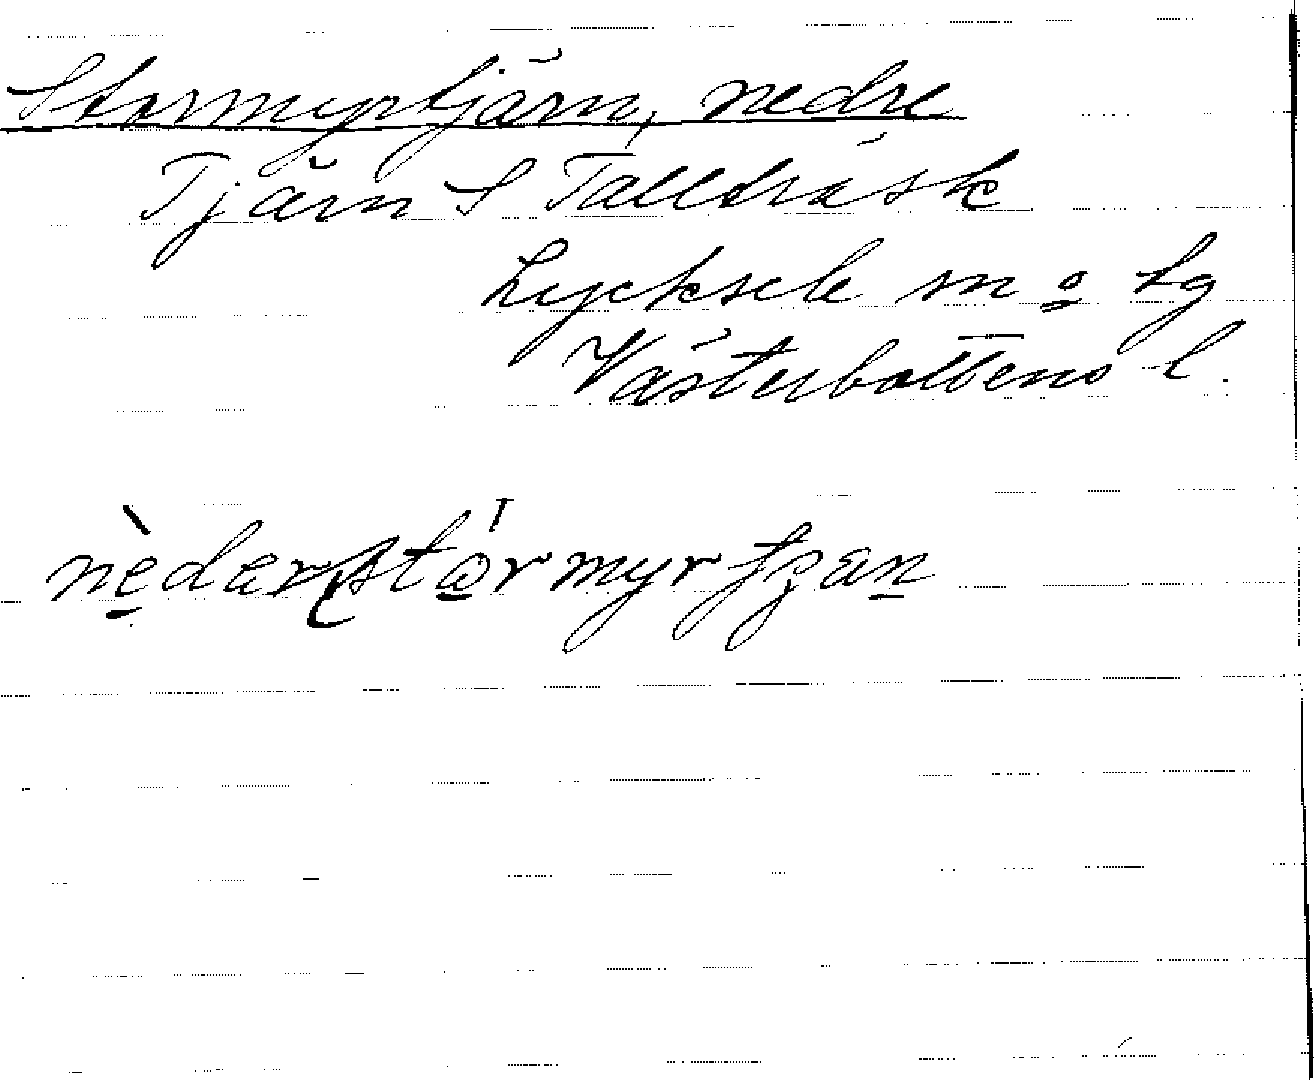 Stormyrtjärn, nedre
Tjärn S Tallträsk
Lycksele sn o lg
Västerbottens l.
nèdərstòrmyrtjan